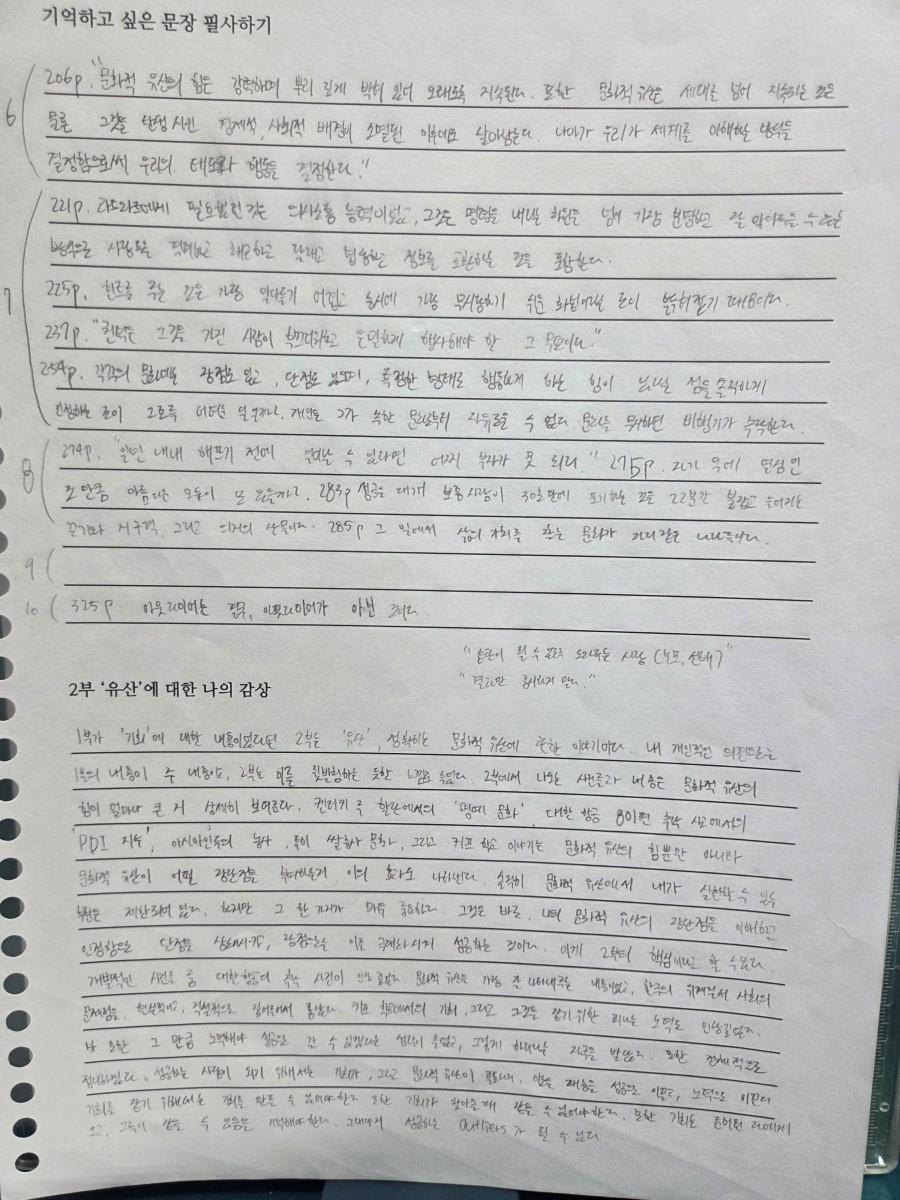 기억하고 싶은 문장 필사하기
6
206p. "문화적 유산의 힘은 강력하며 뿌리 깊게 박혀 있어 오래도록 지속된다. 또한 문화적 유산은 세대를 넘어 지속되는 것은
물론 그것을 탄생시킨 경제적, 사회적 배경이 소멸된 이후에도 살아남는다. 나아가 우리가 세계를 이해하는 방식을
결정함으로써 우리의 태도와 행동을 결정한다."
7
221p. 라트와트에게 필요했던 것은 의사소통 능력이었고, 그것은 명령을 내리는 차원을 넘어 가장 분명하고 잘 알아들을 수 있는
방식으로 사람들을 격려하고 해고하고 달래고 협상하고 정보를 교환하는 것을 포함한다.
225p. 힌트를 주는 것은 가장 알아듣기 어렵고 동시에 가장 무시당하기 쉬운 화법이
237p. "권력은 그것을 가진 사람이 부끄러워하고 은밀하게 행사해야 할 그 무엇이다."
254p. 각각의 문화에는 장점도 있고, 단점도 있으며, 특정한 형태로 행동하게 하는 힘이 있다는 점을 솔직하게
인정하는 것이 그토록 어려운 일일까. 개인은 그가 속한 문화로부터 자유로울 수 없다. 문화를 무시하면 비행기가 추락한다.
8
274p. "일년 내내 해뜨기 전에 일어날 수 있다면 어찌 부자가 못 되리." 275p. 자기 일에 열심인
것 만큼 아름다운 모습이 또 있을까. 283p 성공은 대개 보통 사람이 30초 만에 포기하는 것을 22분간 붙잡고 늘어지는
끈기와 지구력, 그리고 의지의 산물이다. 285p 그 일에서 삶의 가치를 찾는 문화가 가져다준 나라들이다.
9
10
325p. 아웃라이어는 결국, 아웃라이어가 아닌 것이다.
수 없는 사람
"결과만 중시하지 말라."
2부 '유산'에 대한 나의 감상
1부가 '기회'에 대한 내용이었다면 2부는 '유산', 정확히는 문화적 유산에 관한 이야기이다. 내 개인적인 의견으로는
1부의 내용이 주 내용이고, 2부는 이를 뒷받침하는 듯한 느낌도 들었다. 2부에서 나오는 사건들과 내용은 문화적 유산의
힘이 얼마나 큰 지 상세히 보여준다. 켄터키 주 할란에서의 '명예 문화', 대한 항공 801편 추락 사고에서의
'PDI 지수', 아시아인들의 농사, 특히 쌀농사 문화, 그리고 키프 학교 이야기는 문화적 유산의 힘뿐만 아니라
문화적 유산이 어떤 장단점을 부여하는지, 이의 효과도 나타낸다. 솔직히 문화적 유산에서 내가 실천할 수 있는
부분은 제한되어 있다. 하지만 그 한 가지가 매우 중요하다. 그것은 바로, 나의 문화적 유산의 장단점을 이해하고
인정함으로 단점을 상쇄시키고, 장점은 이를 극대화시켜 성공하는 것이다. 이게 2부의 핵심이라고 할 수 있다.
개별적인 사건들 중 대한항공의 추락 사건이 인상 깊었다. 문화적 유산을 가장 잘 나타내주는 내용이었고, 한국의 위계질서 사회의
문제점을, 현실적이고, 직설적으로 짚어줘서 좋았다. 키프 학교에서의 기회, 그리고 그것을 잡기 위한 피나는 노력도 인상깊었다.
나 또한 그 만큼 노력해야 성공을 할 수 있겠다는 생각이 들었고, 그렇게 하려는 자극을 받았다. 또한 전체적으로
정리하였다. 성공하는 사람이 되기 위해서는 기회가, 그리고 문화적 유산이 필요하며,
기회를 잡기 위해서는 기회를 만들 수 있어야 한다. 또한 기회가 찾아올 때 잡을 수 있어야 한다. 또한 기회는 준비된 자에게
오고, 그들이 잡을 수 있음을 기억해야 한다. 그래야지 성공하는 Outliers가 될 수 있다.